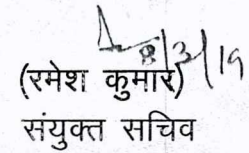 8/3/19
(रमेश कुमार)
संयुक्त सचिव